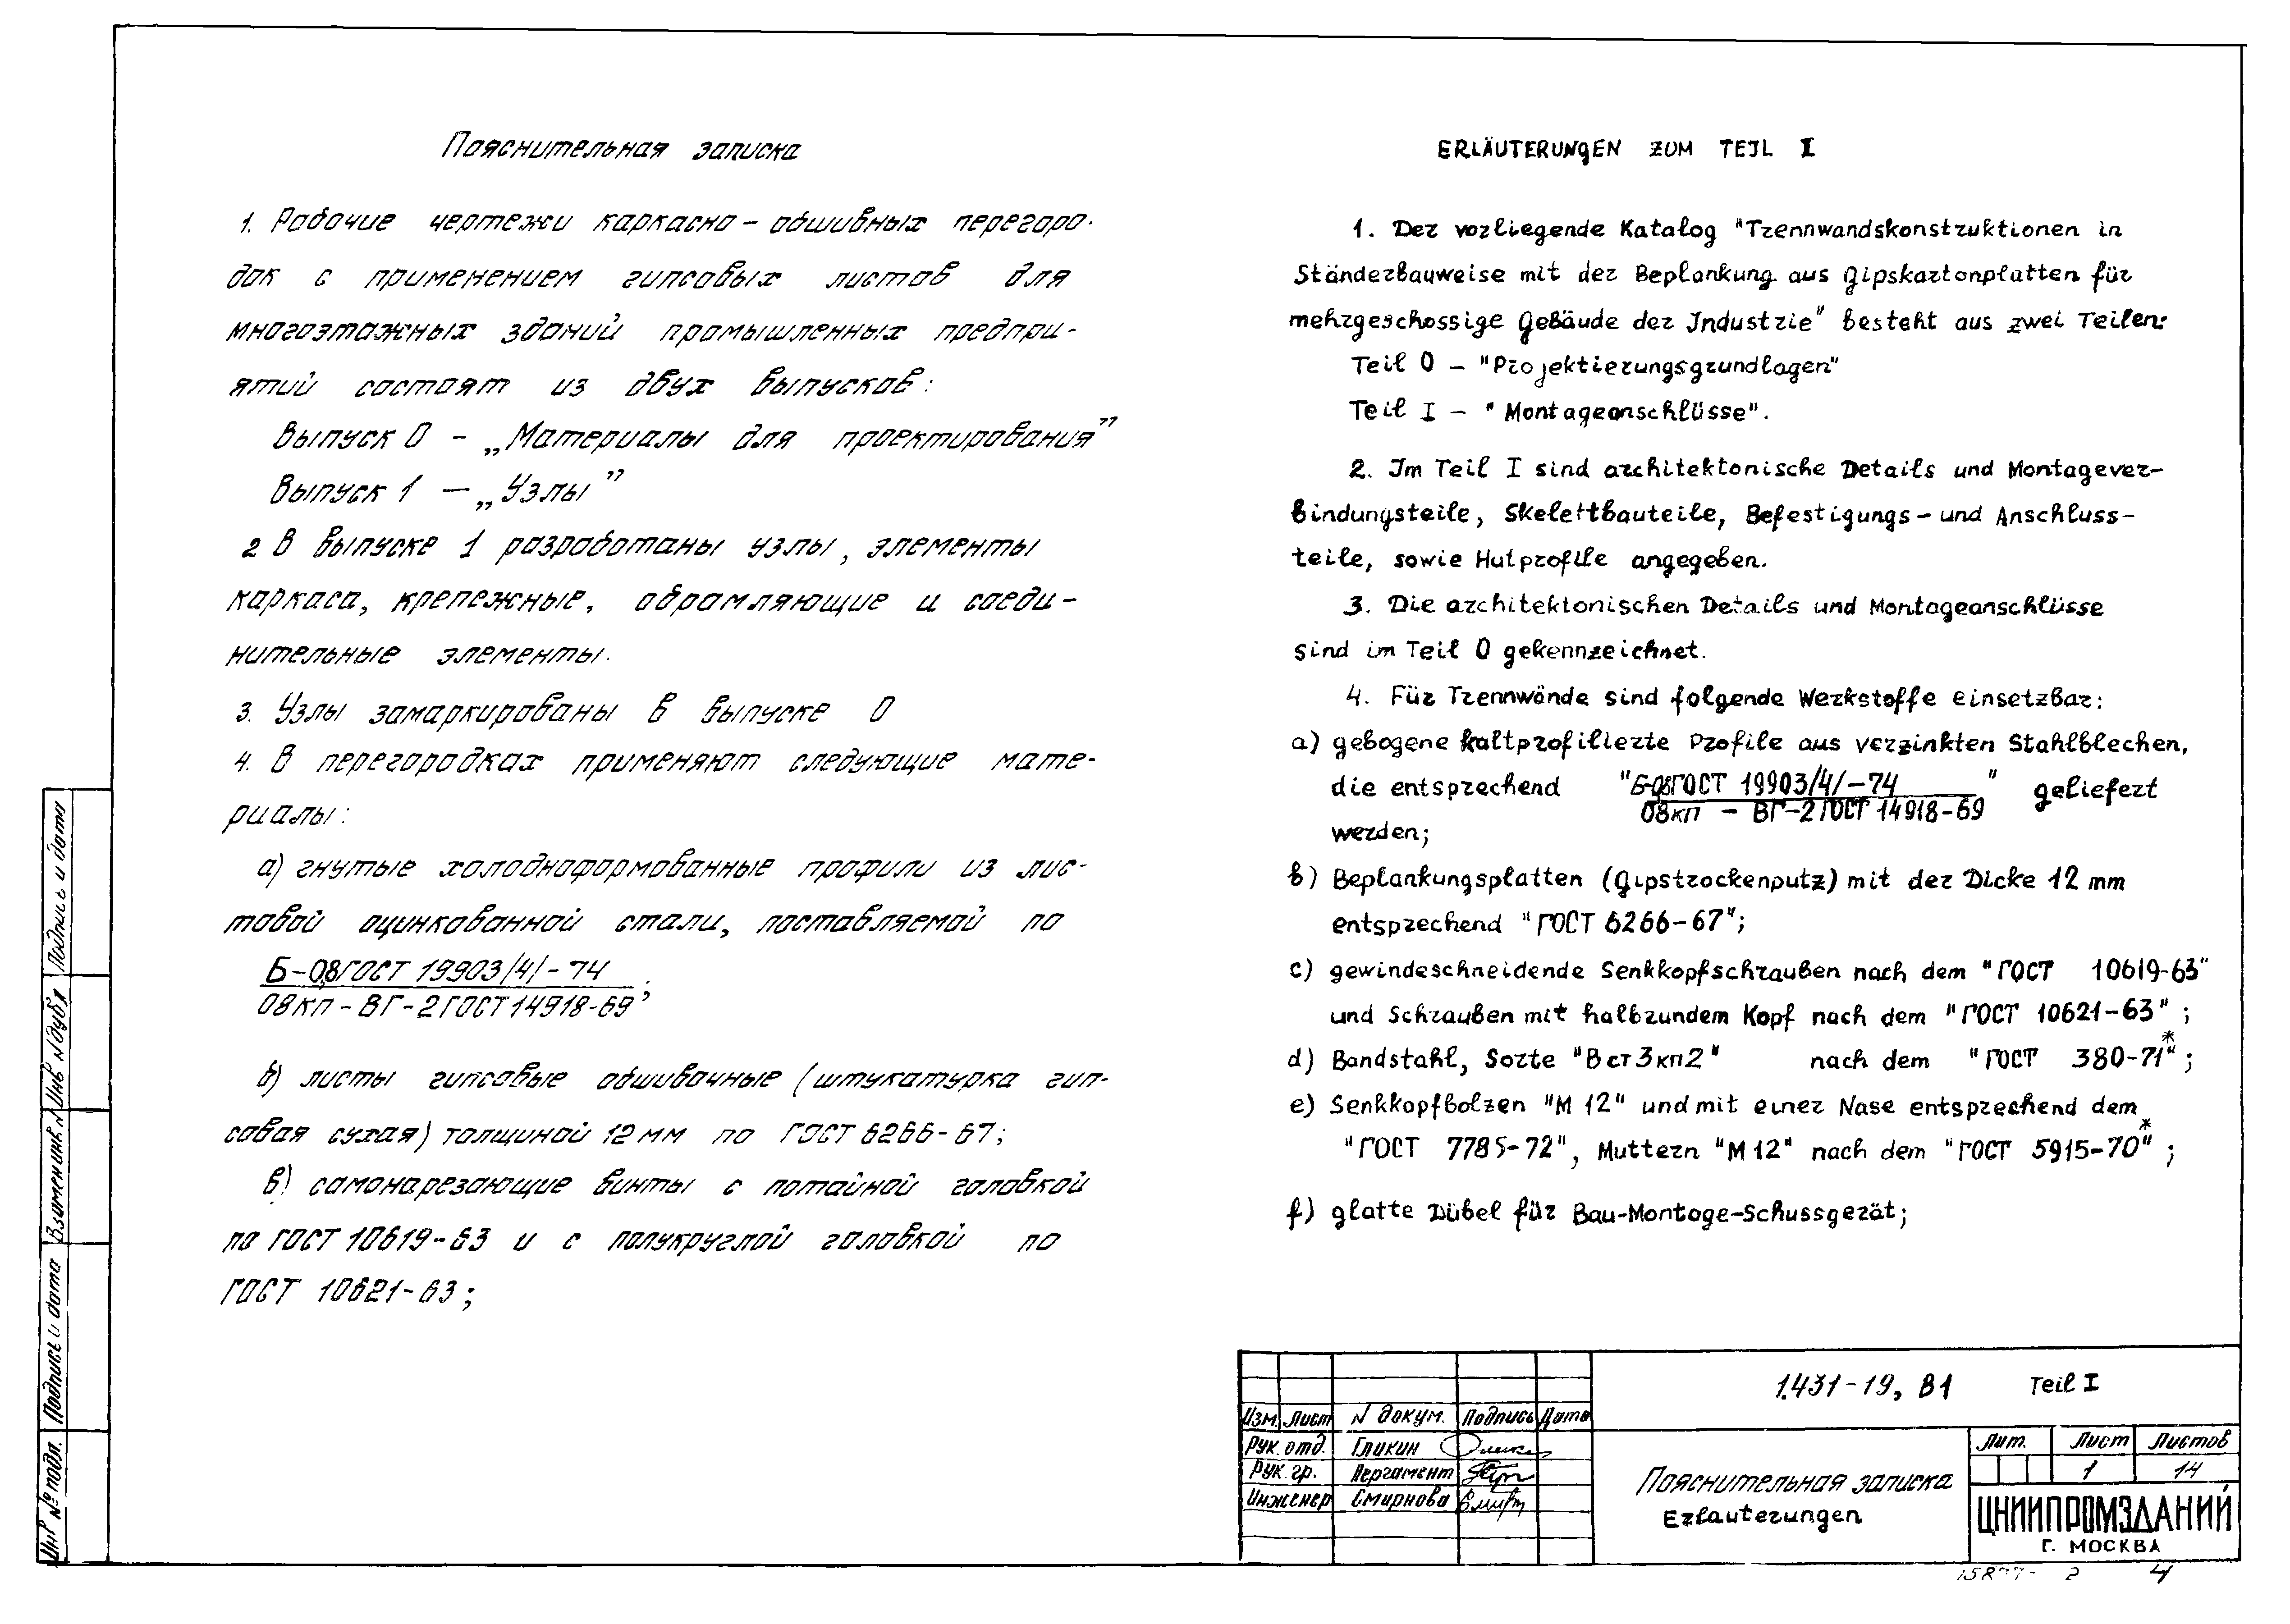 Пояснительная записка
1. Рабочие чертежи каркасно-обшивных перегоро-
док с применением гипсовых листов для
многоэтажных зданий промышленных предпри-
ятий состоят из двух выпусков:
Выпуск 0 - „Материалы для проектирования”
Выпуск 1 — „Узлы”
2 В выпуске 1 разработаны узлы, элементы
каркаса, крепежные, обрамляющие и соеди-
нительные элементы.
3. Узлы замаркированы в выпуске 0
4. В перегородках применяют следующие мате-
риалы:
а) гнутые холодноформованные профили из лис-
товой оцинкованной стали, поставляемой по
Б-0,8 ГОСТ 19903/4/-74
08КП-ВГ-2 ГОСТ 14918-69 ;
б) листы гипсовые обшивочные (штукатурка гип-
совая сухая) толщиной 12 мм по ГОСТ 6266-67;
в) самонарезающие винты с потайной головкой
по ГОСТ 10619-63 и с полукруглой головкой по
ГОСТ 10621-63;
ERLÄUTERUNGEN ZUM TEIL I
1. Der vorliegende Katalog "Trennwandskonstruktionen in
Ständerbauweise mit der Beplankung aus Gipskartonplatten für
mehrgeschossige Gebäude der Industrie" besteht aus zwei Teilen:
Teil 0 - "Projektierungsgrundlagen"
Teil I - "Montageanschlüsse".
2. Im Teil I sind architektonische Details und Montagever-
bindungsteile, Skelettbauteile, Befestigungs- und Anschluss-
teile, sowie Hutprofile angegeben.
3. Die architektonischen Details und Montageanschlüsse
sind im Teil 0 gekennzeichnet.
4. Für Trennwände sind folgende Werkstoffe einsetzbar:
a) gebogene kaltprofilierte Profile aus verzinkten Stahlblechen,
die entsprechend "Б-0,8 ГОСТ 19903/4/-74 " geliefert
08кп - ВГ-2 ГОСТ 14918-69
werden;
b) Beplankungsplatten (Gipstrockenputz) mit der Dicke 12 mm
entsprechend "ГОСТ 6266-67";
c) gewindeschneidende Senkkopfschrauben nach dem "ГОСТ 10619-63"
und Schrauben mit halbrundem Kopf nach dem "ГОСТ 10621-63";
d) Bandstahl, Sorte "В ст 3 кп 2" nach dem "ГОСТ 380-71*";
e) Senkkopfbolzen "М 12" und mit einer Nase entsprechend dem
"ГОСТ 7785-72", Muttern "М 12" nach dem "ГОСТ 5915-70*";
f) glatte Dübel für Bau-Montage-Schussgerät;
Инв № подл. Подпись и дата Взамен инв. № Инв № дубл Подпись и дата
1.431-19, В1 Teil I
Изм. Лист N докум. Подпись Дата
Рук. отд. Гликин
Рук. гр. Пергамент
Инженер Смирнова
Пояснительная записка
Erlauterungen
Лит. Лист Листов
1 14
ЦНИИПРОМЗДАНИЙ
Г. МОСКВА
2 4